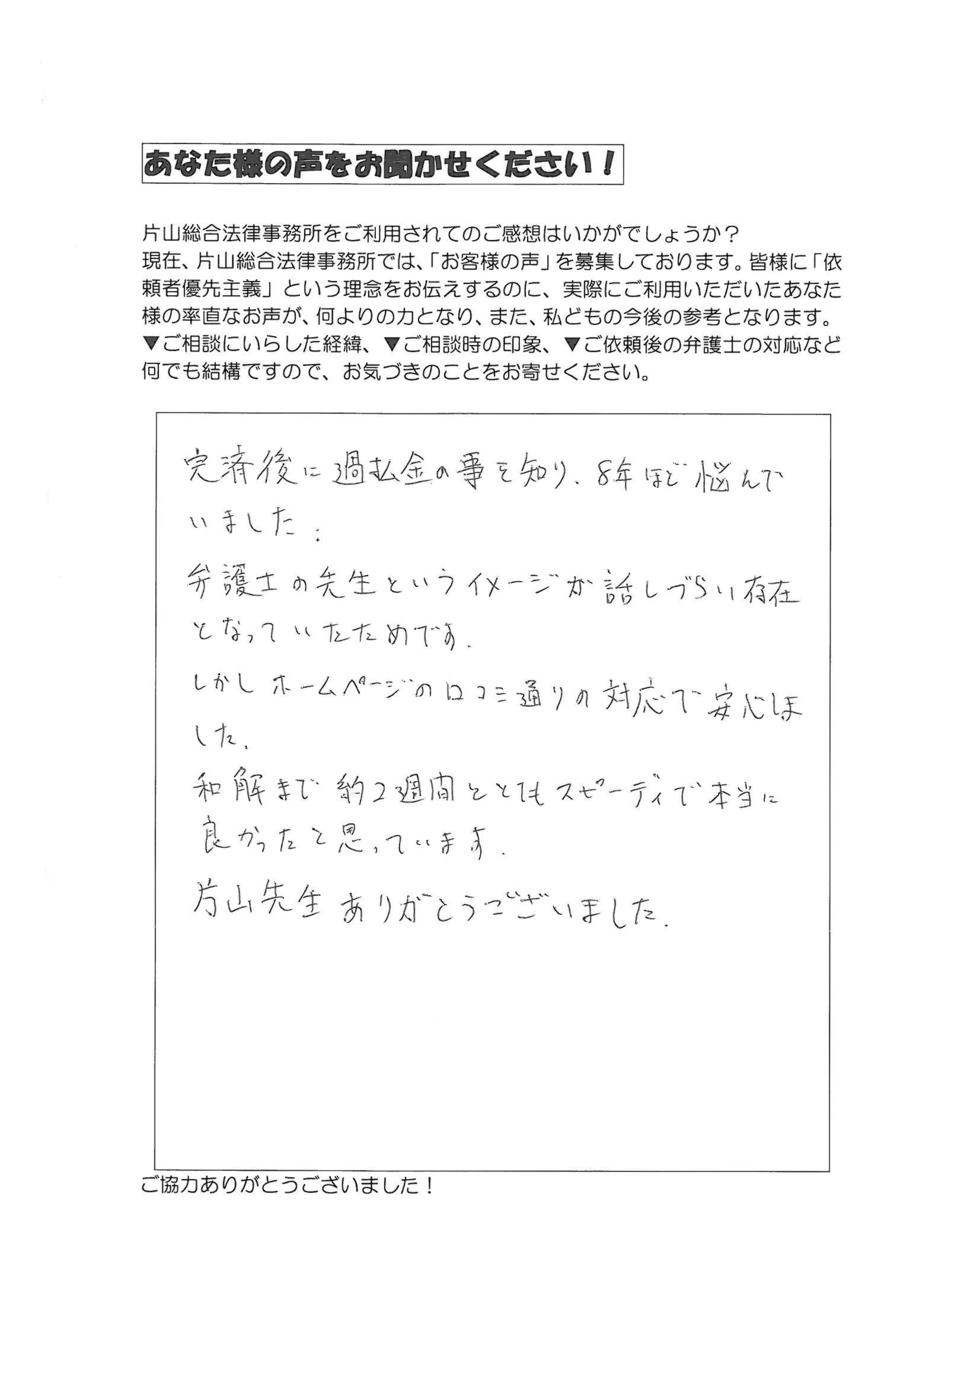 あなた様の声をお聞かせください！
片山総合法律事務所をご利用されてのご感想はいかがでしょうか？
現在、片山総合法律事務所では、「お客様の声」を募集しております。皆様に「依
頼者優先主義」という理念をお伝えするのに、実際にご利用いただいたあなた
様の率直なお声が、何よりの力となり、また、私どもの今後の参考となります。
▼ご相談にいらした経緯、▼ご相談時の印象、▼ご依頼後の弁護士の対応など
何でも結構ですので、お気づきのことをお寄せください。
完済後に過払金の事を知り、8年ほど悩んで
いました．
弁護士の先生というイメージが話しづらい存在
となっていたためです．
しかしホームページの口コミ通りの対応で安心しま
した．
和解まで約2週間ととてもスピーディで本当に
良かったと思っています．
片山先生ありがとうございました．
ご協力ありがとうございました！